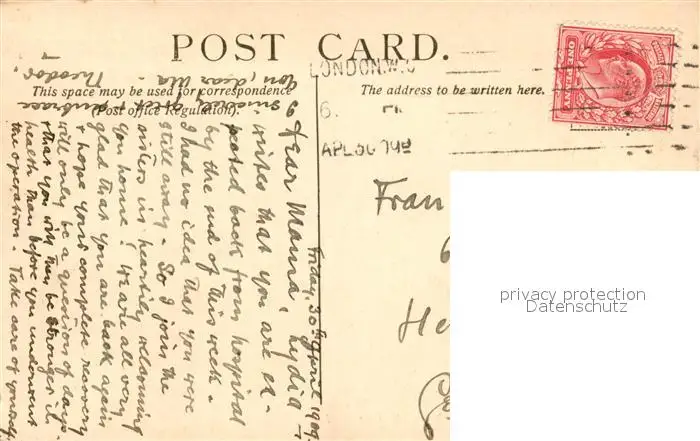 POST CARD.
This space may be used for correspondence
(Post office Regulation).
The address to be written here.
LONDON.W.C
6.
AP 30
ONE PENNY
Friday, 30th April 1909.
Dear Mama! Lydia
writes that you are ex-
pected back from hospital
by the end of this week.
I had no idea that you were
still away. So I join the
sisters in heartily welcoming
you home! We are all very
glad that you are back again
& hope your complete recovery
will only be a question of days
& that you will then be stronger in
health than before you underwent
the operation. Take care of yourself
greet & embrace
you, dear Ma.
Theodor.
Frau
He
privacy protection
Datenschutz